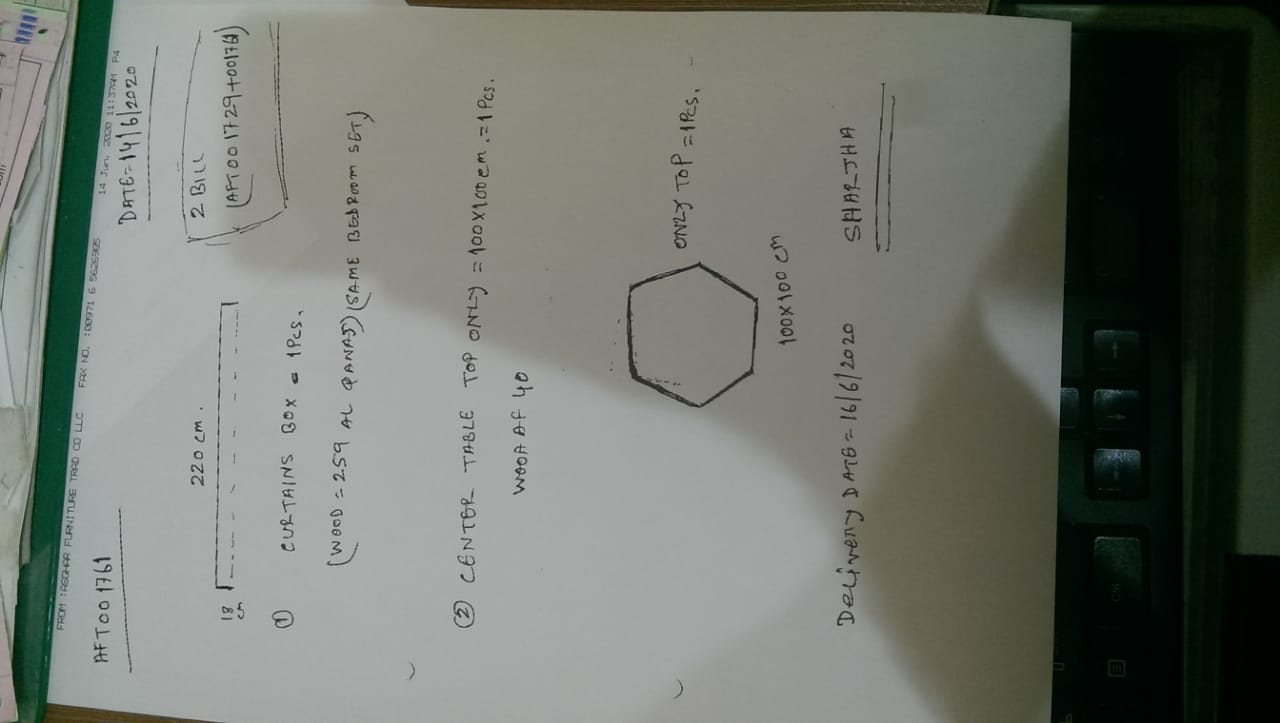 FROM :ASGHAR FURNITURE TRAD CO LLC FAX NO. :00971 6 5626985 14 Jun. 2020 11:37AM P4
AFT001761
DATE=14/6/2020
2 BILL
(AFT001729+001761)
220 cm.
18 cm
① CURTAINS BOX = 1Pcs.
(WOOD = 259 AL QANAS) (SAME BEDROOM SET)
② CENTER TABLE TOP ONLY = 100X100cm.=1 Pcs.
WOOA AF 40
ONLY TOP =1Pcs.
100X100 cm
Delivery DATE = 16/6/2020
SHARJHA
Ctrl